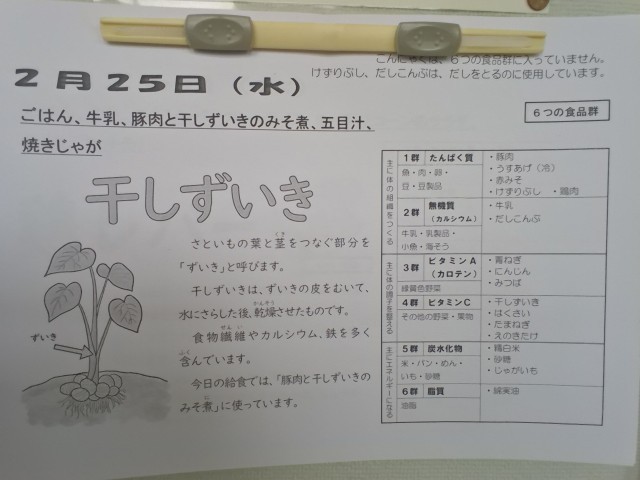 こんにゃくは、6つの食品群に入っていません。
けずりぶし、だしこんぶは、だしをとるのに使用しています。
2月25日（水）
6つの食品群
ごはん、牛乳、豚肉と干しずいきのみそ煮、五目汁、
焼きじゃが
干しずいき
さといもの葉と茎をつなぐ部分を
「ずいき」と呼びます。
干しずいきは、ずいきの皮をむいて、
水にさらした後、乾燥させたものです。
食物繊維やカルシウム、鉄を多く
含んでいます。
今日の給食では、「豚肉と干しずいきの
みそ煮」に使っています。
ずいき
主に体の組織をつくる
1群 たんぱく質
魚・肉・卵・
豆・豆製品
・豚肉
・うすあげ（冷）
・赤みそ
・けずりぶし ・鶏肉
2群 無機質
（カルシウム）
牛乳・乳製品・
小魚・海そう
・牛乳
・だしこんぶ
主に体の調子を整える
3群 ビタミンA
（カロテン）
緑黄色野菜
・青ねぎ
・にんじん
・みつば
4群 ビタミンC
その他の野菜・果物
・干しずいき
・はくさい
・たまねぎ
・えのきたけ
主にエネルギーになる
5群 炭水化物
米・パン・めん・
いも・砂糖
・精白米
・砂糖
・じゃがいも
6群 脂質
油脂
・綿実油